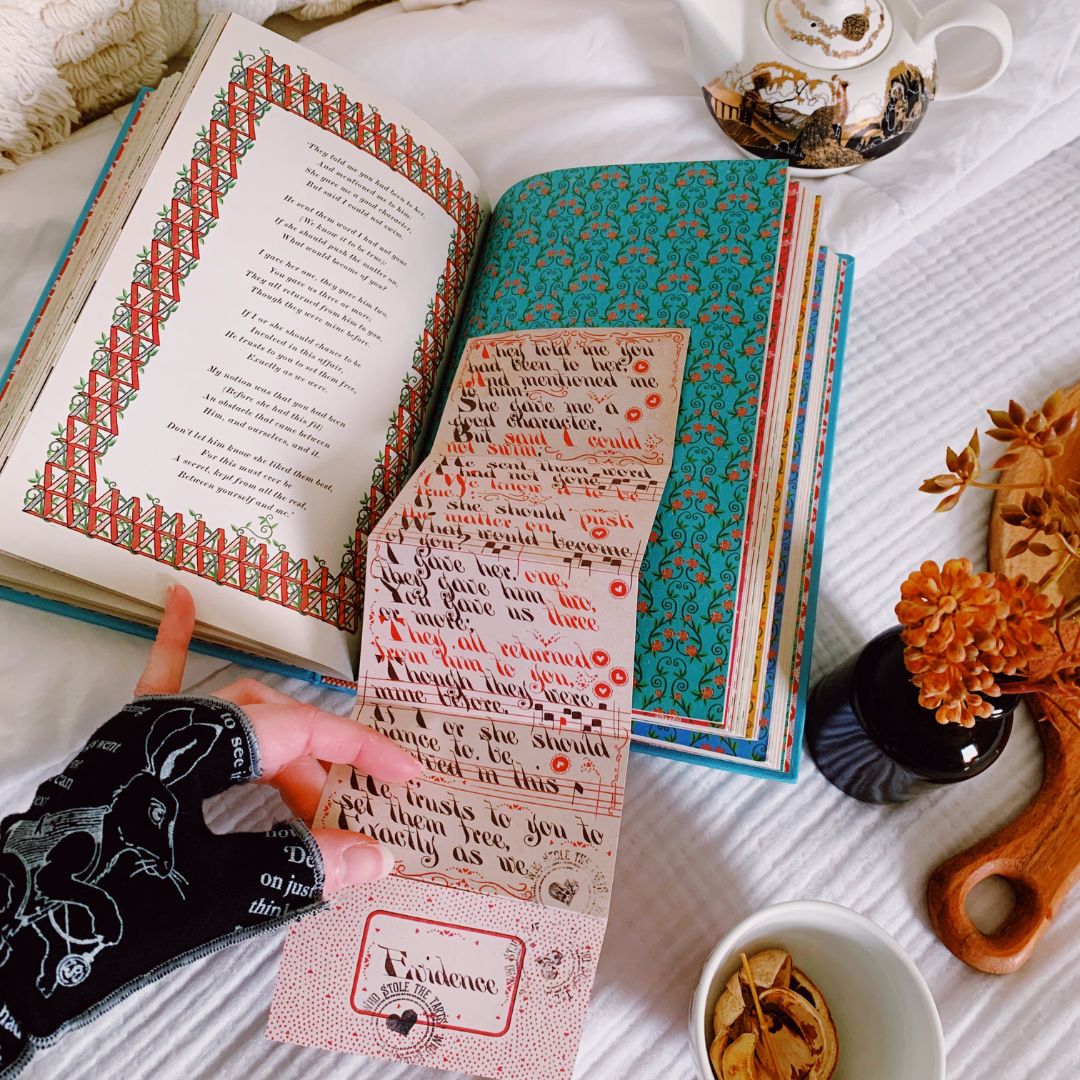 'They told me you had been to her,
And mentioned me to him:
She gave me a good character,
But said I could not swim.
He sent them word I had not gone
(We know it to be true):
If she should push the matter on,
What would become of you?
I gave her one, they gave him two,
You gave us three or more;
They all returned from him to you,
Though they were mine before.
If I or she should chance to be
Involved in this affair,
He trusts to you to set them free,
Exactly as we were.
My notion was that you had been
(Before she had this fit)
An obstacle that came between
Him, and ourselves, and it.
Don't let him know she liked them best,
For this must ever be
A secret, kept from all the rest,
Between yourself and me.'
They told me you
had been to her,
And mentioned me
to him:
She gave me a
good character,
But said I could
not swim.
He sent them word
I had not gone
(We know it to be
true):
If she should push
the matter on,
What would become
of you?
I gave her one,
they gave him two,
You gave us three
or more;
They all returned
from him to you,
Though they were
mine before.
If I or she should
chance to be
Involved in this
He trusts to you to
set them free,
Exactly as we
Evidence
WHO STOLE THE TARTS
WHO STOLE THE TARTS
to see it
went
can
not
on just
think
had